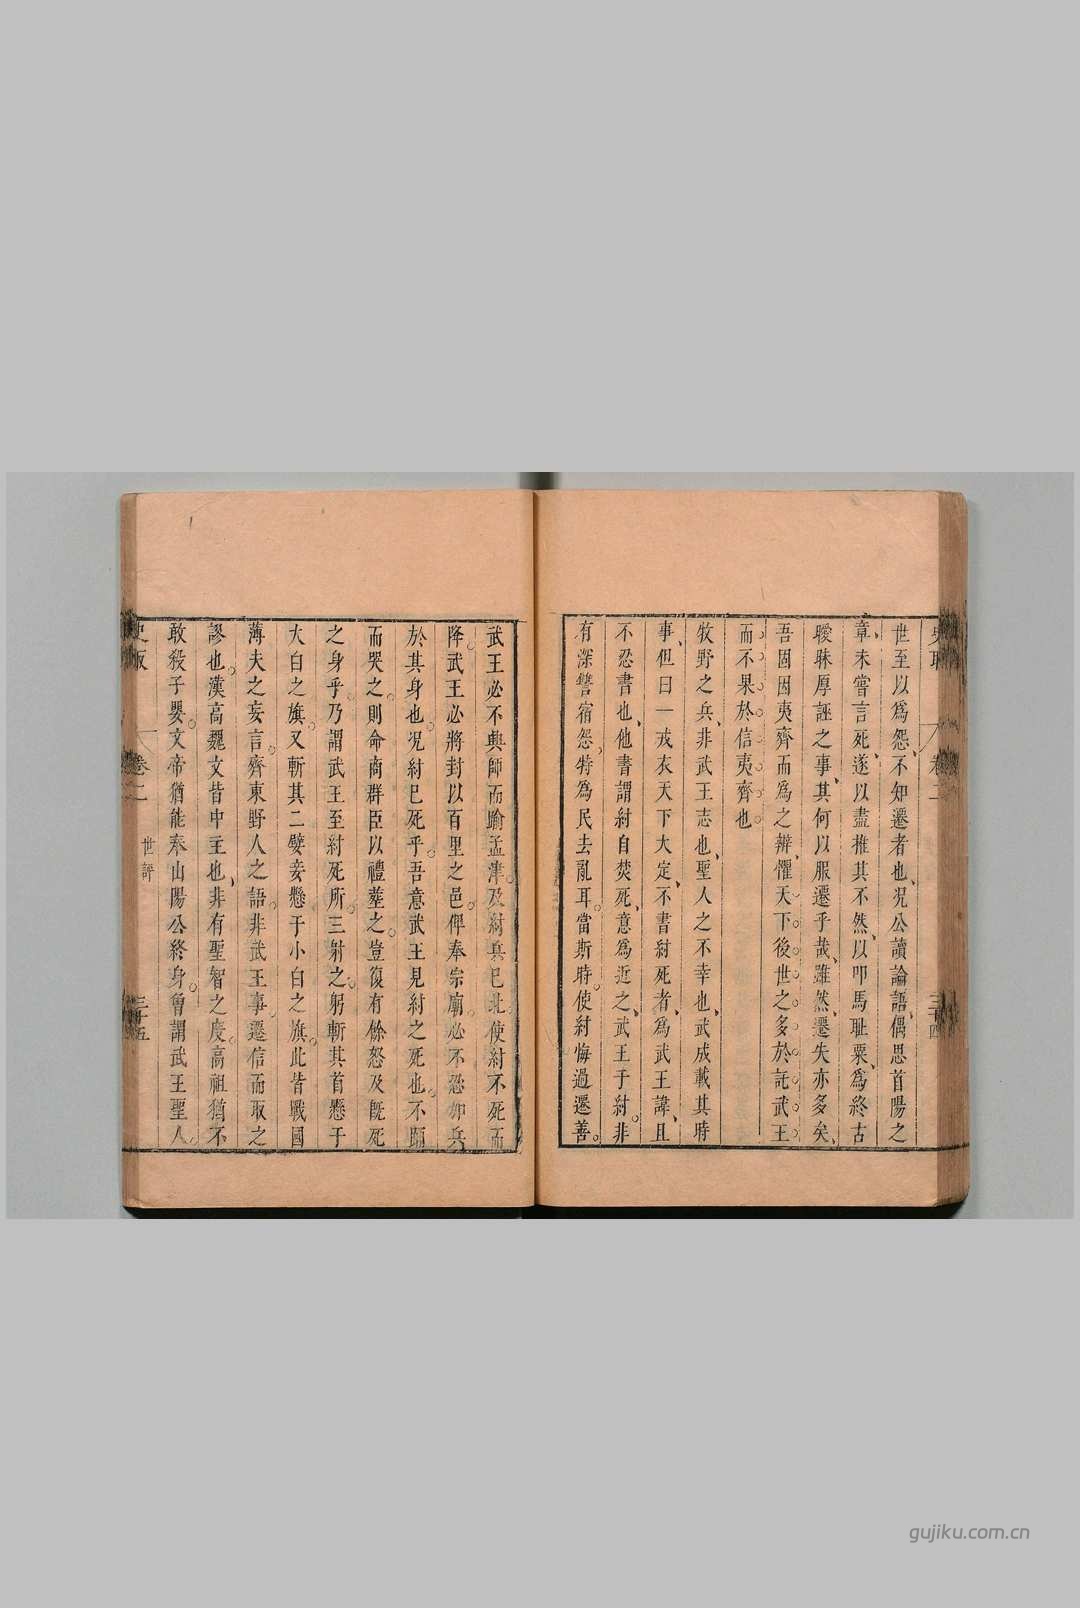 世至以爲怨、不知遷者也、况公讀論語、偶思首陽之
章、未嘗言死、遂以盡推其不然、以叩馬耻粟、爲終古
曖昧厚誣之事、其何以服遷乎哉、雖然、遷失亦多矣、
吾固因夷齊而爲之辨、懼天下後世之多於託武王
而不果於信夷齊也
牧野之兵、非武王志也、聖人之不幸也、武成載其時
事、但曰一戎衣天下大定、不書紂死者、爲武王諱、且
不忍書也、他書謂紂自焚死、意爲近之、武王于紂。非
有深讐宿怨。特爲民去亂耳。當斯時。使紂悔過遷善。
三十四
武王必不興師而踰孟津。及紂兵已北。使紂不死而
降。武王必將封以百里之邑。俾奉宗廟。必不忍加兵
於其身也。况紂已死乎。吾意武王見紂之死也。不
而哭之。則命商群臣以禮塟之。豈復有餘怒及旣死
之身乎。乃謂武王至紂死所。三射之。躬斬其首懸于
大白之旗。又斬其二嬖妾懸于小白之旗。此皆戰國
薄夫之妄言。齊東野人之語。非武王事。遷信而取之
謬也。漢高魏文皆中主也、非有聖智之度。高祖猶不
敢殺子嬰。文帝猶能奉山陽公終身。曾謂武王聖人。
卷二
世譜
三十五
gujiku.com.cn